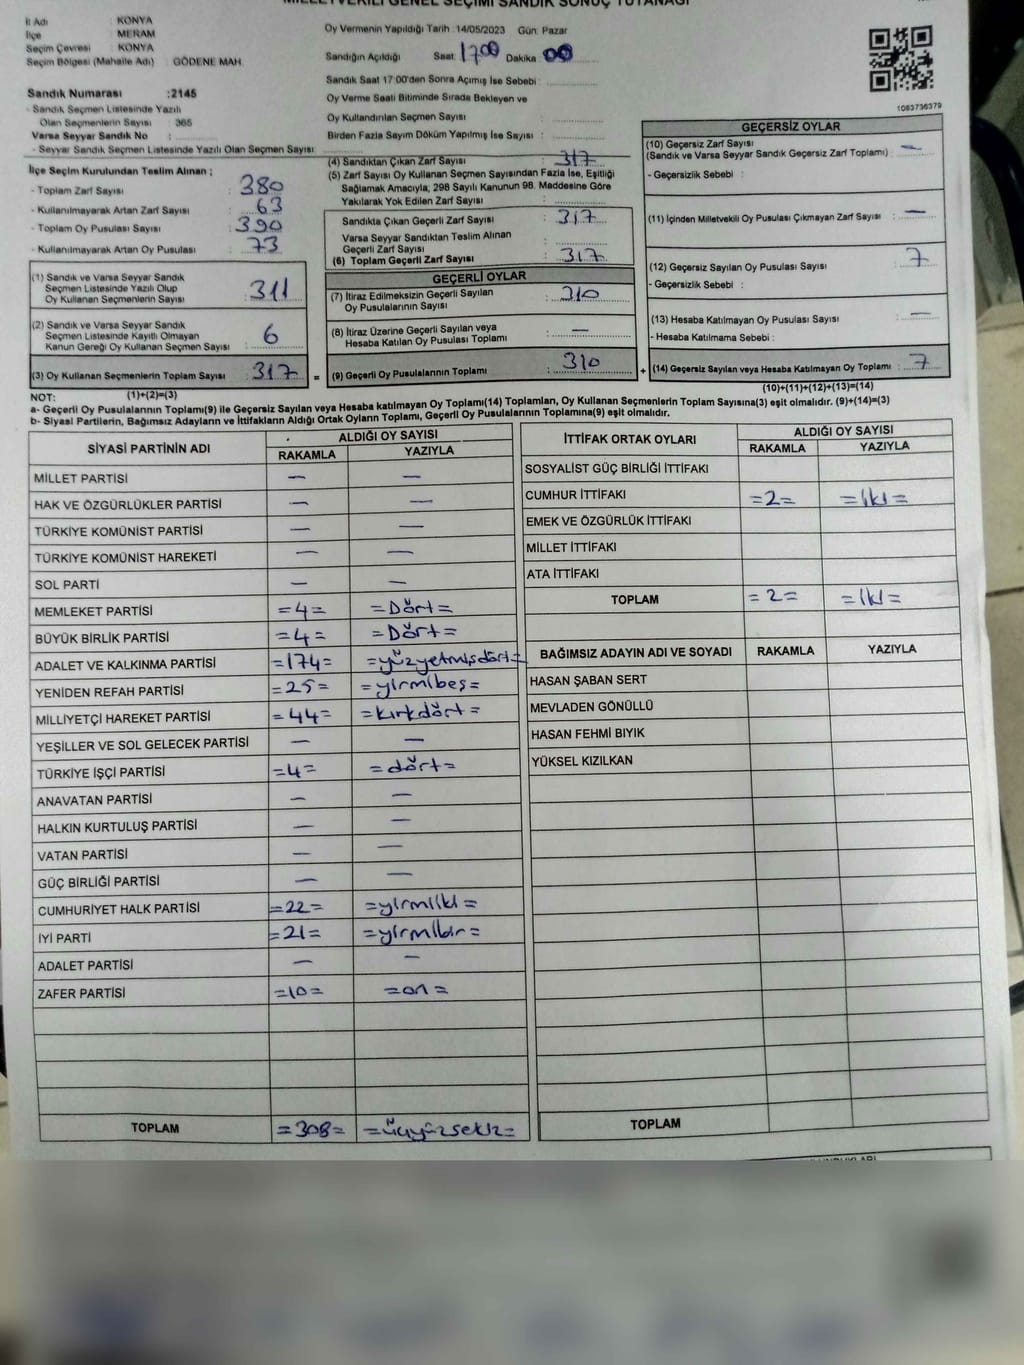 MİLLETVEKİLİ GENEL SEÇİMİ SANDIK SONUÇ TUTANAĞI
İl Adı : KONYA
İlçe : MERAM
Seçim Çevresi : KONYA
Seçim Bölgesi (Mahalle Adı) : GÖDENE MAH.
Sandık Numarası :2145
- Sandık Seçmen Listesinde Yazılı
Olan Seçmenlerin Sayısı : 365
Varsa Seyyar Sandık No :
- Seyyar Sandık Seçmen Listesinde Yazılı Olan Seçmen Sayısı :
Oy Vermenin Yapıldığı Tarih :14/05/2023 Gün: Pazar
Sandığın Açıldığı Saat 17:00 Dakika 00
Sandık Saat 17:00'den Sonra Açımış İse Sebebi :
Oy Verme Saati Bitiminde Sırada Bekleyen ve
Oy Kullandırılan Seçmen Sayısı :
Birden Fazla Sayım Döküm Yapılmış İse Sayısı :
1083736379
İlçe Seçim Kurulundan Teslim Alınan ;
- Toplam Zarf Sayısı : 380
- Kullanılmayarak Artan Zarf Sayısı : 63
- Toplam Oy Pusulası Sayısı : 390
- Kullanılmayarak Artan Oy Pusulası : 73
(1) Sandık ve Varsa Seyyar Sandık
Seçmen Listesinde Yazılı Olup
Oy Kullanan Seçmenlerin Sayısı : 311
(2) Sandık ve Varsa Seyyar Sandık
Seçmen Listesinde Kayıtlı Olmayan
Kanun Gereği Oy Kullanan Seçmen Sayısı : 6
(3) Oy Kullanan Seçmenlerin Toplam Sayısı : 317 =
(4) Sandıktan Çıkan Zarf Sayısı : 317
(5) Zarf Sayısı Oy Kullanan Seçmen Sayısından Fazla İse, Eşitliği
Sağlamak Amacıyla, 298 Sayılı Kanunun 98. Maddesine Göre
Yakılarak Yok Edilen Zarf Sayısı :
Sandıkta Çıkan Geçerli Zarf Sayısı : 317
Varsa Seyyar Sandıktan Teslim Alınan
Geçerli Zarf Sayısı :
(6) Toplam Geçerli Zarf Sayısı : 317
GEÇERLİ OYLAR
(7) İtiraz Edilmeksizin Geçerli Sayılan
Oy Pusulalarının Sayısı : 310
(8) İtiraz Üzerine Geçerli Sayılan veya
Hesaba Katılan Oy Pusulası Toplamı : —
(9) Geçerli Oy Pusulalarının Toplamı : 310 +
GEÇERSİZ OYLAR
(10) Geçersiz Zarf Sayısı
(Sandık ve Varsa Seyyar Sandık Geçersiz Zarf Toplamı) : —
- Geçersizlik Sebebi :
(11) İçinden Milletvekili Oy Pusulası Çıkmayan Zarf Sayısı : —
(12) Geçersiz Sayılan Oy Pusulası Sayısı : 7
- Geçersizlik Sebebi :
(13) Hesaba Katılmayan Oy Pusulası Sayısı : —
- Hesaba Katılmama Sebebi :
(14) Geçersiz Sayılan veya Hesaba Katılmayan Oy Toplamı : 7
NOT: (1)+(2)=(3)
(10)+(11)+(12)+(13)=(14)
a- Geçerli Oy Pusulalarının Toplamı(9) ile Geçersiz Sayılan veya Hesaba katılmayan Oy Toplamı(14) Toplamları, Oy Kullanan Seçmenlerin Toplam Sayısına(3) eşit olmalıdır. (9)+(14)=(3)
b- Siyasi Partilerin, Bağımsız Adayların ve İttifakların Aldığı Ortak Oyların Toplamı, Geçerli Oy Pusulalarının Toplamına(9) eşit olmalıdır.
SİYASİ PARTİNİN ADI ALDIĞI OY SAYISI
RAKAMLA YAZIYLA
MİLLET PARTİSİ — —
HAK VE ÖZGÜRLÜKLER PARTİSİ — —
TÜRKİYE KOMÜNİST PARTİSİ — —
TÜRKİYE KOMÜNİST HAREKETİ — —
SOL PARTİ — —
MEMLEKET PARTİSİ =4= =Dört=
BÜYÜK BİRLİK PARTİSİ =4= =Dört=
ADALET VE KALKINMA PARTİSİ =174= =yüzyetmişdört=
YENİDEN REFAH PARTİSİ =25= =yirmibeş=
MİLLİYETÇİ HAREKET PARTİSİ =44= =kırkdört=
YEŞİLLER VE SOL GELECEK PARTİSİ — —
TÜRKİYE İŞÇİ PARTİSİ =4= =dört=
ANAVATAN PARTİSİ — —
HALKIN KURTULUŞ PARTİSİ — —
VATAN PARTİSİ — —
GÜÇ BİRLİĞİ PARTİSİ — —
CUMHURİYET HALK PARTİSİ =22= =yirmiiki=
İYİ PARTİ =21= =yirmibir=
ADALET PARTİSİ — —
ZAFER PARTİSİ =10= =on=
TOPLAM =308= =üçyüzsekiz=
İTTİFAK ORTAK OYLARI ALDIĞI OY SAYISI
RAKAMLA YAZIYLA
SOSYALİST GÜÇ BİRLİĞİ İTTİFAKI
CUMHUR İTTİFAKI =2= =iki=
EMEK VE ÖZGÜRLÜK İTTİFAKI
MİLLET İTTİFAKI
ATA İTTİFAKI
TOPLAM =2= =iki=
BAĞIMSIZ ADAYIN ADI VE SOYADI RAKAMLA YAZIYLA
HASAN ŞABAN SERT
MEVLADEN GÖNÜLLÜ
HASAN FEHMİ BIYIK
YÜKSEL KIZILKAN
TOPLAM